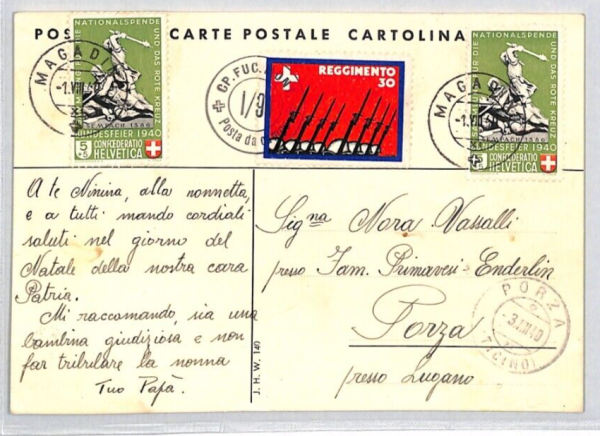 POS CARTE POSTALE CARTOLINA
SAMMLUNG FÜR DIE NATIONALSPENDE UND DAS ROTE KREUZ
SEMPACH 1386
BUNDESFEIER 1940
5
CONFŒDERATIO
HELVETICA
MAGADI
-1.VIII.40
GP. FUC.
I/9
Posta da
REGGIMENTO
30
MAGADI
-1.VIII.40
NATIONALSPENDE UND DAS ROTE KREUZ
BUNDESFEIER 1940
5
CONFŒDERATIO
HELVETICA
A te Ninina, alla nonnetta,
e a tutti mando cordiali
saluti nel giorno del
Natale della nostra cara
Patria.
Mi raccomando, sia una
bambina giudiziosa e non
far tribulare la nonna
Tuo Papà.
J. H. W. 140
Signa Nora Vassalli
presso Fam. Primavesi-Enderlin
Porza
presso Lugano
PORZA
-3.VIII.40
(TICINO)